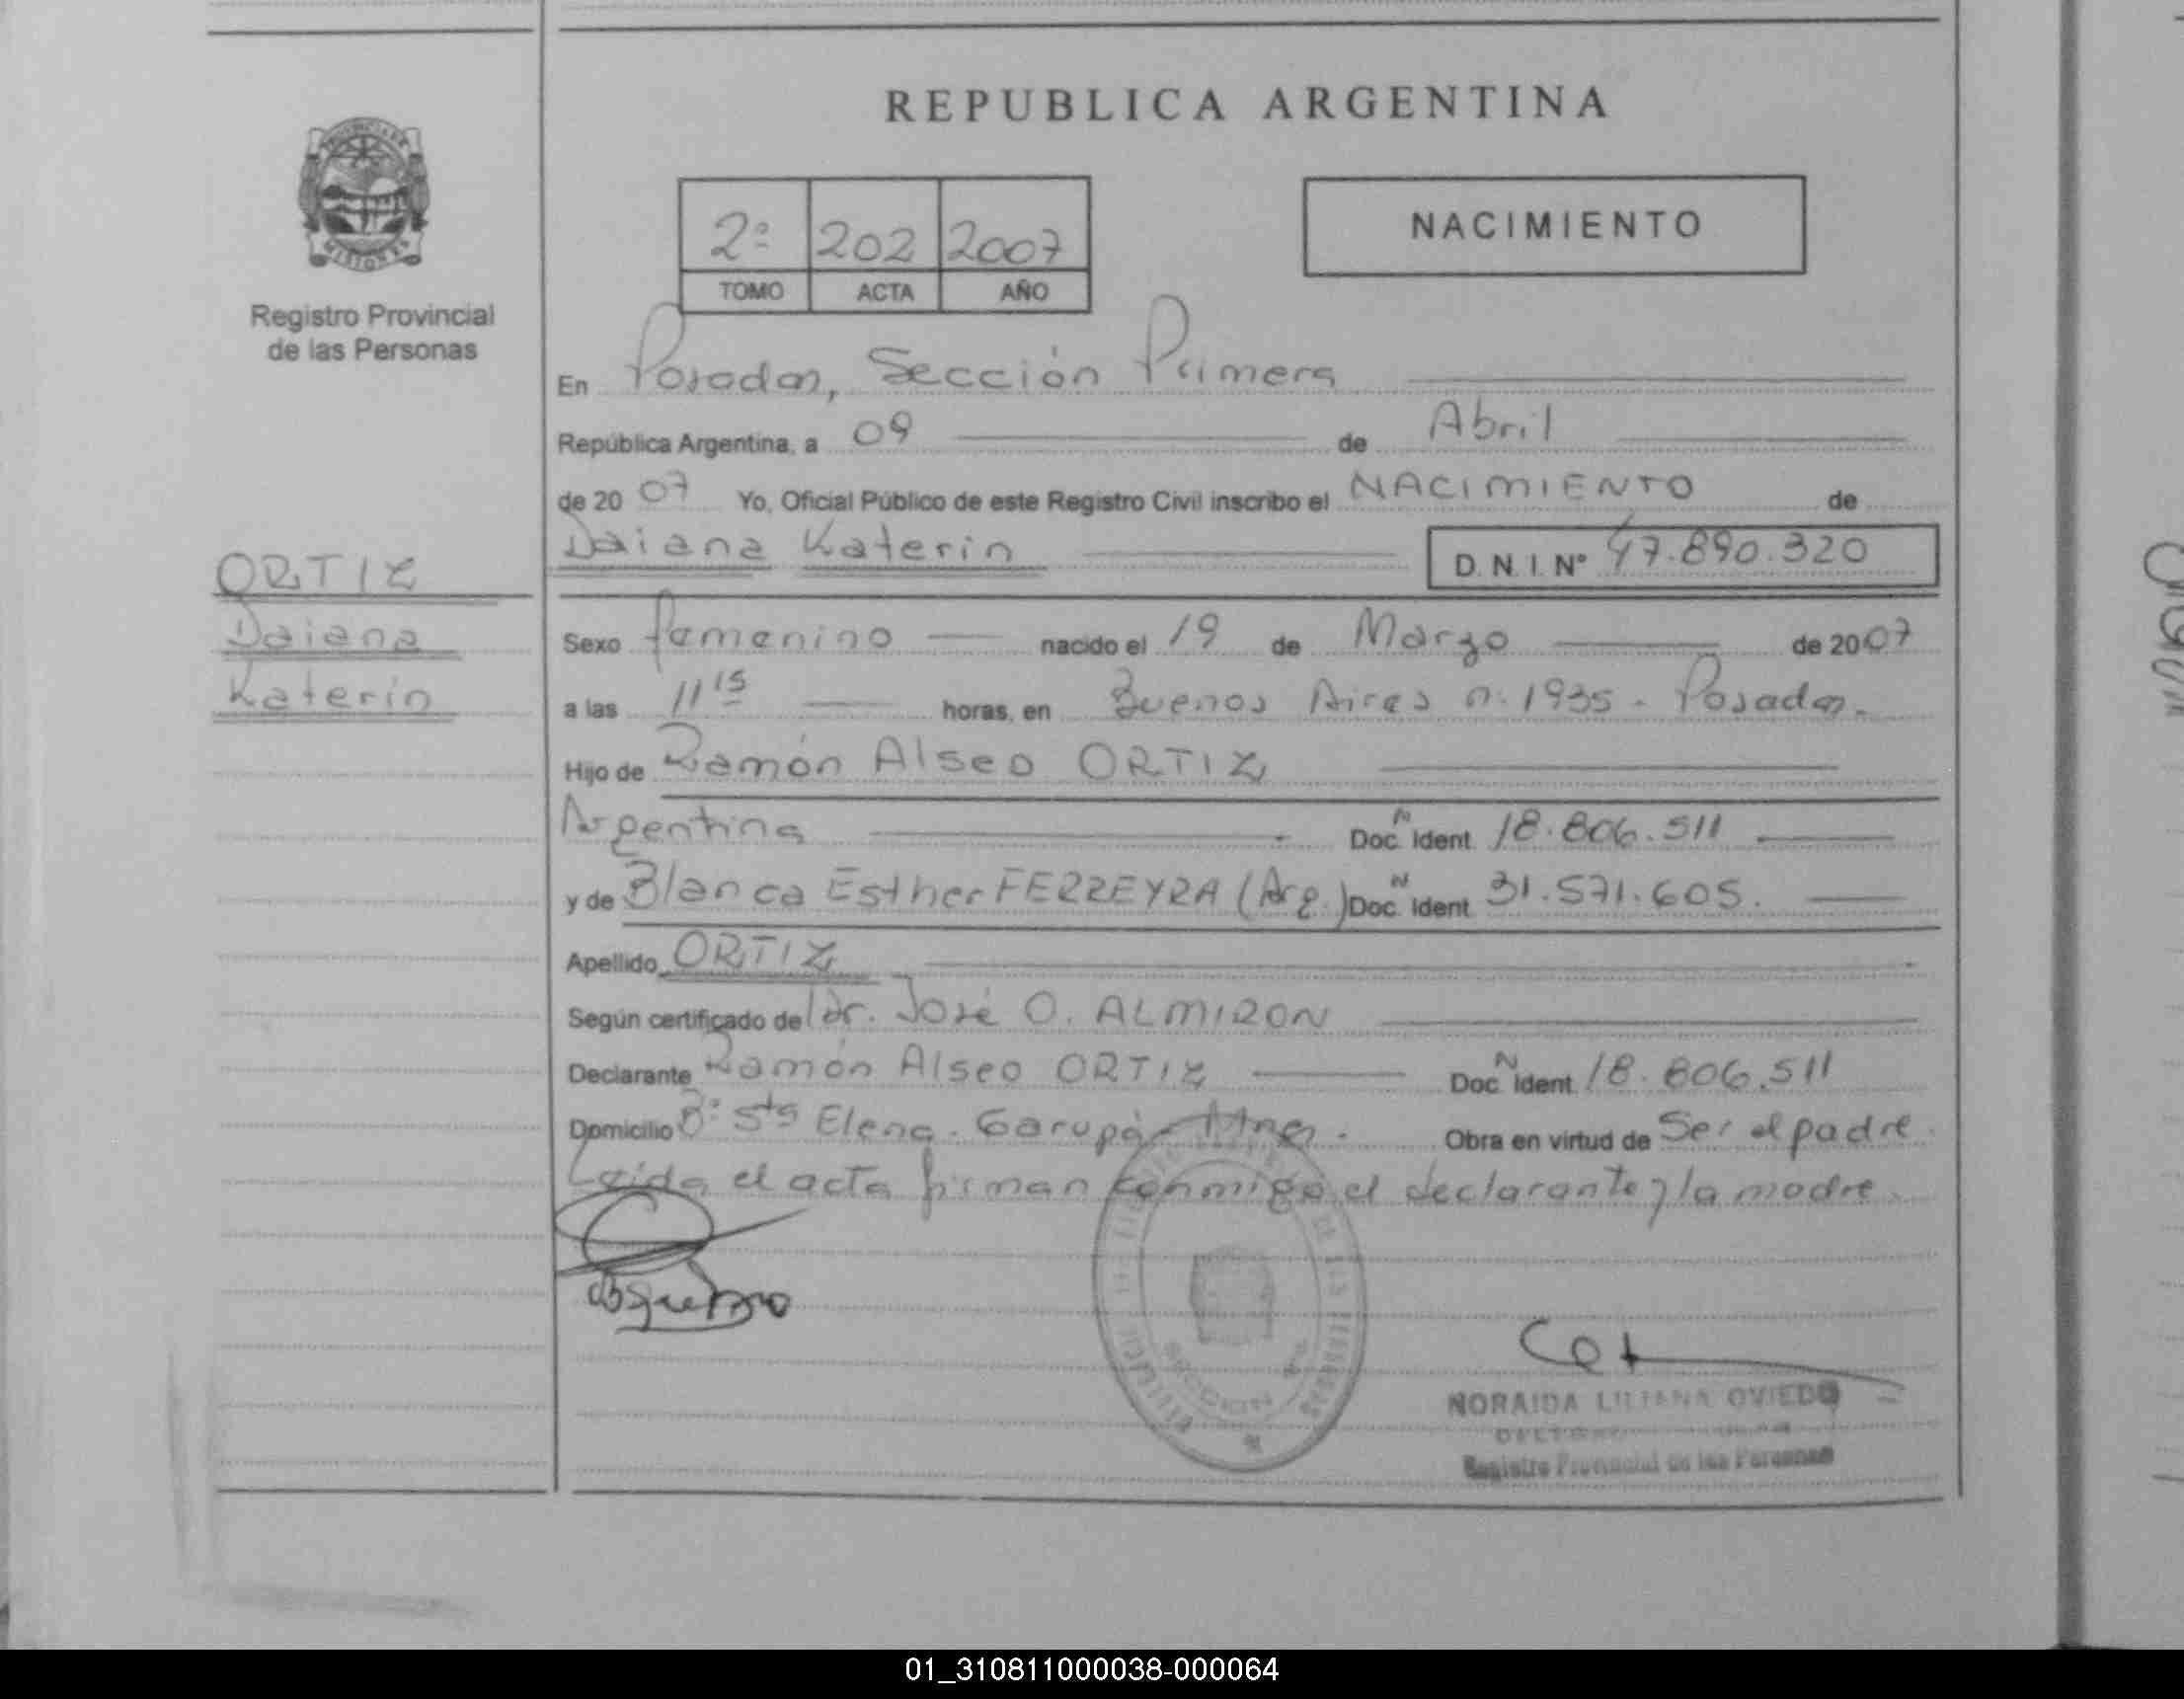 REPUBLICA ARGENTINA
PROVINCIA DE
MISIONES
Registro Provincial
de las Personas
2º 202 2007
TOMO ACTA AÑO
NACIMIENTO
En Posadas, Sección Primera
República Argentina, a 09 de Abril
de 2007 Yo, Oficial Público de este Registro Civil inscribo el NACIMIENTO de
Daiana Katerin D. N. I. Nº 47.890.320
ORTIZ
Daiana
Katerin
Sexo femenino nacido el 19 de Marzo de 2007
a las 11 15 horas, en Buenos Aires n. 1935 - Posadas.
Hijo de Ramón Alseo ORTIZ
Argentina Doc. N Ident. 18.806.511
y de Blanca Esther FERREYRA (Arg.) Doc. N Ident. 31.571.605.
Apellido ORTIZ
Según certificado del dr. José O. ALMIRON
Declarante Ramón Alseo ORTIZ Doc. N Ident. 18.806.511
Domicilio Bº Sta Elena - Garupá - Mnes. Obra en virtud de Ser el padre.
Leída el acta firman conmigo el declarante y la madre.
NORAIDA LILIANA OVIEDO
Registro Provincial de las Personas
01_310811000038-000064